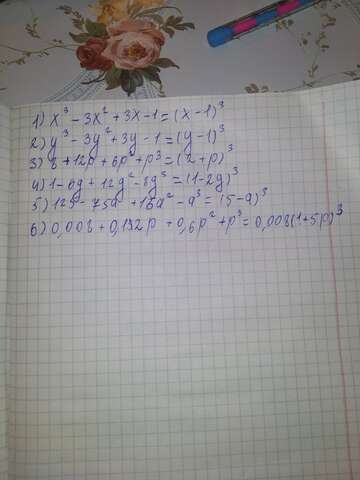 1) x³ - 3x² + 3x - 1 = (x - 1)³
2) y³ - 3y² + 3y - 1 = (y - 1)³
3) 8 + 12p + 6p² + p³ = (2 + p)³
4) 1 - 6g + 12g² - 8g³ = (1 - 2g)³
5) 125 - 75a + 15a² - a³ = (5 - a)³
6) 0,008 + 0,192p + 0,6p² + p³ = 0,008(1 + 5p)³